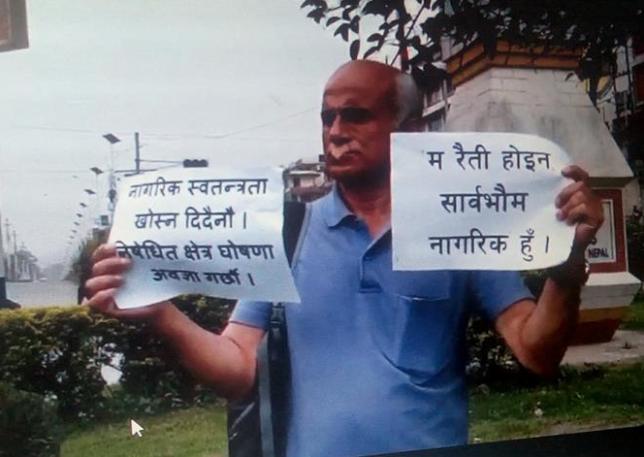 नागरिक स्वतन्त्रता
खोस्न दिदैनौ ।
निषेधित क्षेत्र घोषणा
अवज्ञा गर्छौ ।
म रैती होइन
सार्वभौम
नागरिक हुँ ।
NEPAL